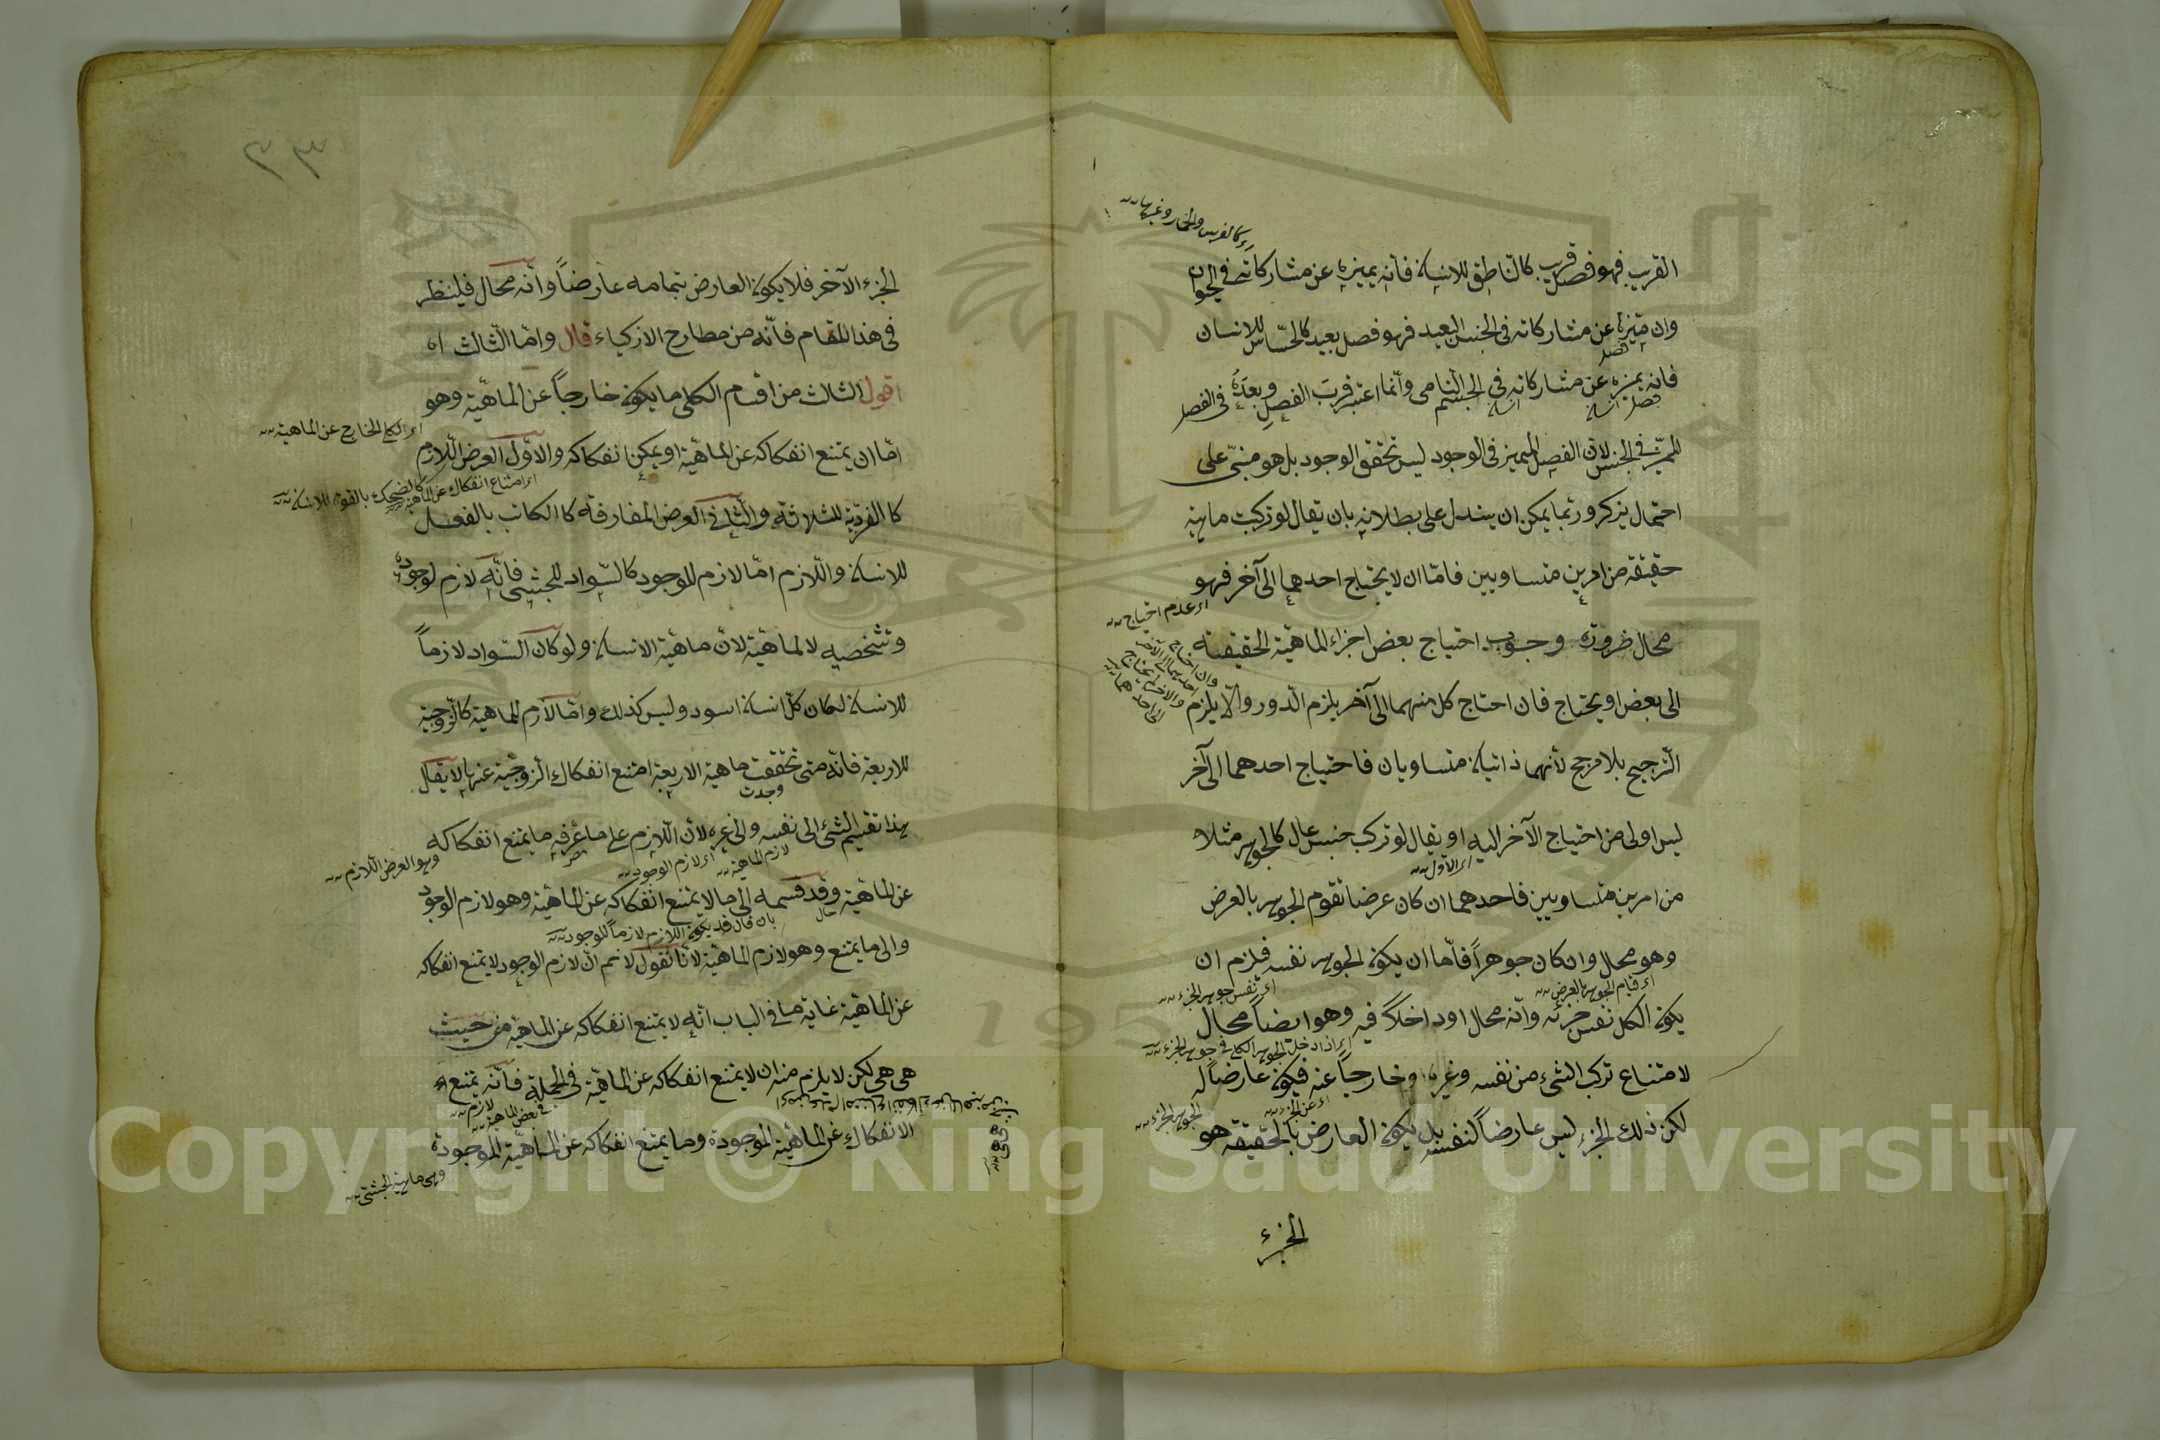 القريب فهو فصل قريب كالناطق للانسان فانه يميزه عن مشاركاته في الحيوان
وان ميزه عن مشاركاته في الجنس البعيد فهو فصل بعيد كالحساس للانسان
فانه يميزه عن مشاركاته في الجسم النامي وانما اعتبر قرب الفصل وبعده في الفصل
المميز في الجنس لان الفصل المميز في الوجود ليس تحقق الوجود بل هو مبني على
احتمال يذكر وربما يمكن ان يستدل على بطلانه بان يقال لو تركبت ماهية
حقيقة من امرين متساويين فاما ان لا يحتاج احدهما الى آخر فهو
محال ضرورة وجوب احتياج بعض اجزاء الماهية الحقيقية
الى بعض او يحتاج فان احتاج كل منهما الى آخر يلزم الدور والا يلزم
الترجيح بلا مرجح لانهما ذاتيان متساويان فاحتياج احدهما الى آخر
ليس اولى من احتياج الآخر اليه او يقال لو تركب جنس عال كالجوهر مثلا
من امرين متساويين فاحدهما ان كان عرضا تقوم الجوهر بالعرض
وهو محال وان كان جوهراً فاما ان يكون الجوهر نفسه فلزم ان
يكون الكل نفس جزئه وانه محال او داخلاً فيه وهو ايضاً محال
لامتناع تركب الشيء من نفسه وغيره او خارجاً عنه فيكون عارضاً له
لكن ذلك الجزء ليس عارضاً لنفسه بل يكون العارض بالحقيقة هو
الجزء
اى كالفرس والحمار وغيرهما
اى عدم احتياج
وان احتاج
احدهما الى الآخر
والآخر لا يحتاج
الى احدهما
اى الاول
اى قيام الجوهر بالعرض
اى نفس جوهر الجزء
الجوهر الجزء
٢٣
الجزء الآخر فلا يكون العارض بتمامه عارضاً وانه محال فلينظر
في هذا المقام فانه من مطارح الاذكياء قال واما الثالث اه
اقول الثالث من اقسام الكلى ما يكون خارجاً عن الماهية وهو
اما ان يمتنع انفكاكه عن الماهية او يمكن انفكاكه والاول العرض اللازم
كالفردية للثلاثة والثاني العرض المفارقة كالكاتب بالفعل
للانسان واللازم اما لازم للوجود كالسواد للحبشى فانه لازم لوجوده
وتشخصه لا لماهية لان ماهية الانسان ولو كان السواد لازماً
للانسان لكان كل انسان اسود وليس كذلك واما لازم للماهية كالزوجية
للاربعة فانه متى تحققت ماهية الاربعة امتنع انفكاك الزوجية عنها لا يقال
هذا تقسيم الشيء الى نفسه والى غيره لان اللازم على ما عرفه ما يمتنع انفكاكه
عن الماهية وقد قسمه الى ما لا يمتنع انفكاكه عن الماهية وهو لازم الوجود
والى ما يمتنع وهو لازم الماهية لانا نقول لا نسلم ان لازم الوجود لا يمتنع انفكاكه
عن الماهية غاية ما في الباب انه لا يمتنع انفكاكه عن الماهية من حيث
هي هي لكن لا يلزم منه ان لا يمتنع انفكاكه عن الماهية في الجملة فانه يمتنع
الانفكاك عن الماهية الموجودة وما يمتنع انفكاكه عن الماهية الموجودة
اى الكلى الخارج عن الماهية
اى امتناع انفكاك عن الماهية
كالضحك بالقوة للانسان
وجدت
وهو العرض اللازم
لازم الماهية
اى لازم الوجود
بان قال قد يكون اللازم لازماً للوجود
في بعض الماهية
هي هي
وهي ماهية الحبشى
Copyright © King Saud University
1957